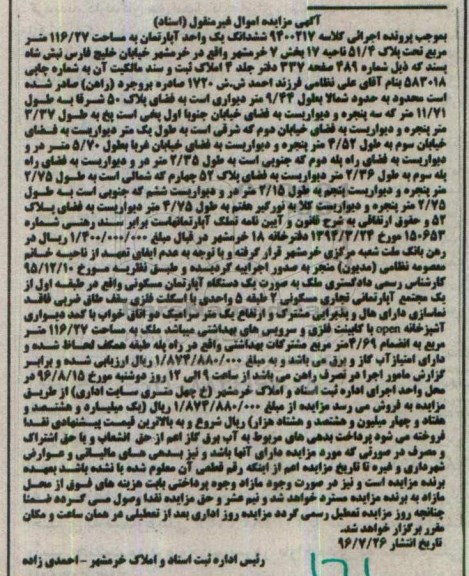 آگهی مزایده اموال غیرمنقول (اسناد)
بموجب پرونده اجرائی کلاسه ۹۴۰۰۲۱۷ ششدانگ یک واحد آپارتمان به مساحت ۱۱۶/۲۷ متر
مربع تحت پلاک ۵۱/۴ ناحیه ۱۷ بخش ۷ خرمشهر واقع در خرمشهر خیابان خلیج فارس نبش شاه
پسند که ذیل شماره ۴۸۹ صفحه ۳۳۷ دفتر جلد ۴ املاک ثبت و سند مالکیت آن به شماره چاپی
۵۸۳۰۱۸ بنام آقای علی نظامی فرزند احمد ش.ش ۱۷۲۰ صادره بروجرد (راهن) صادر شده
است محدود به حدود شمالا بطول ۹/۴۴ متر دیواری است به فضای پلاک ۵۰ شرقا به طول
۱۱/۷۱ متر که سه پنجره و دیواریست به فضای خیابان جنوبا اول پخی است پخ به طول ۳/۳۷
متر پنجره و دیواریست به فضای خیابان دوم که شرقی است به طول یک متر دیواریست به فضای
خیابان سوم به طول ۴/۵۲ متر پنجره و دیواریست به فضای خیابان غربا بطول ۵/۷۰ متر در و
دیواریست به فضای راه پله دوم که جنوبی است به طول ۲/۳۵ متر در و دیواریست به فضای راه
پله سوم به طول ۲/۳۶ متر دیواریست به فضای پلاک ۵۲ چهارم که شمالی است به طول ۲/۷۵
متر پنجره و دیواریست پنجم به طول ۲/۱۵ متر در و دیواریست ششم که جنوبی است به طول
۲/۷۵ متر پنجره و دیواریست کلا به نورگیر هفتم به طول ۴/۷۵ متر دیواریست به فضای پلاک
۵۲ و حقوق ارتفاقی به شرح قانون و آیین نامه تملک آپارتمانهاست برابر سند رهنی شماره
۱۵۰۶۵۳ مورخ ۱۳۹۳/۳/۲۴ دفترخانه ۱۸ خرمشهر در قبال مبلغ ۱/۳۰۰/۰۰۰/۰۰۰ ریال در
رهن بانک ملت شعبه مرکزی خرمشهر قرار گرفته و با توجه به عدم ایفای تعهد از ناحیه خانم
معصومه نظامی (مدیون) منجر به صدور اجراییه گردیده و طبق نظریه مورخ ۹۵/۱۲/۱۰
کارشناس رسمی دادگستری ملک به صورت یک دستگاه آپارتمان مسکونی واقع در طبقه اول از
یک مجتمع آپارتمانی تجاری مسکونی ۲ طبقه ۵ واحدی با اسکلت فلزی سقف طاق ضربی فاقد
نماسازی دارای هال و پذیرایی مشترک و ارتفاع یک متر سرامیک دو اتاق خواب با کمد دیواری
آشپزخانه open با کابینت فلزی و سرویس های بهداشتی میباشد ملک به مساحت ۱۱۶/۲۷ متر
مربع به انضمام ۴/۶۹ متر مربع مشترکات بهداشتی واقع در راه پله طبقه همکف لحاظ شده و
دارای امتیاز آب گاز و برق می باشد و به مبلغ ۱/۸۷۴/۸۸۰/۰۰۰ ریال ارزیابی شده و برابر
گزارش مامور اجرا در تصرف راهن می باشد از ساعت ۹ الی ۱۲ روز دوشنبه مورخ ۹۶/۸/۱۵ در
محل واحد اجرای اداره ثبت اسناد و املاک خرمشهر (خ چهل متری سایت اداری) از طریق
مزایده به فروش می رسد مزایده از مبلغ ۱/۸۷۴/۸۸۰/۰۰۰ ریال (یک میلیارد و هشتصد و
هفتاد و چهار میلیون و هشتصد و هشتاد هزار) ریال شروع و به بالاترین قیمت پیشنهادی نقدا
فروخته می شود پرداخت بدهی های مربوط به آب برق گاز اعم از حق انشعاب و یا حق اشتراک
و مصرف در صورتی که مورد مزایده دارای آنها باشد و نیز بدهی های مالیاتی و عوارض
شهرداری و غیره تا تاریخ مزایده اعم از اینکه رقم قطعی آن معلوم شده یا نشده باشد بعهده
برنده مزایده است و نیز در صورت وجود مازاد وجوه پرداختی بابت هزینه های فوق از محل
مازاد به برنده مزایده مسترد خواهد شد و نیم عشر و حق مزایده نقدا وصول می گردد ضمنا
چنانچه روز مزایده تعطیل رسمی گردد مزایده روز اداری بعد از تعطیلی در همان ساعت و مکان
مقرر برگزار خواهد شد.
تاریخ انتشار ۹۶/۷/۲۶
رئیس اداره ثبت اسناد و املاک خرمشهر - احمدی زاده